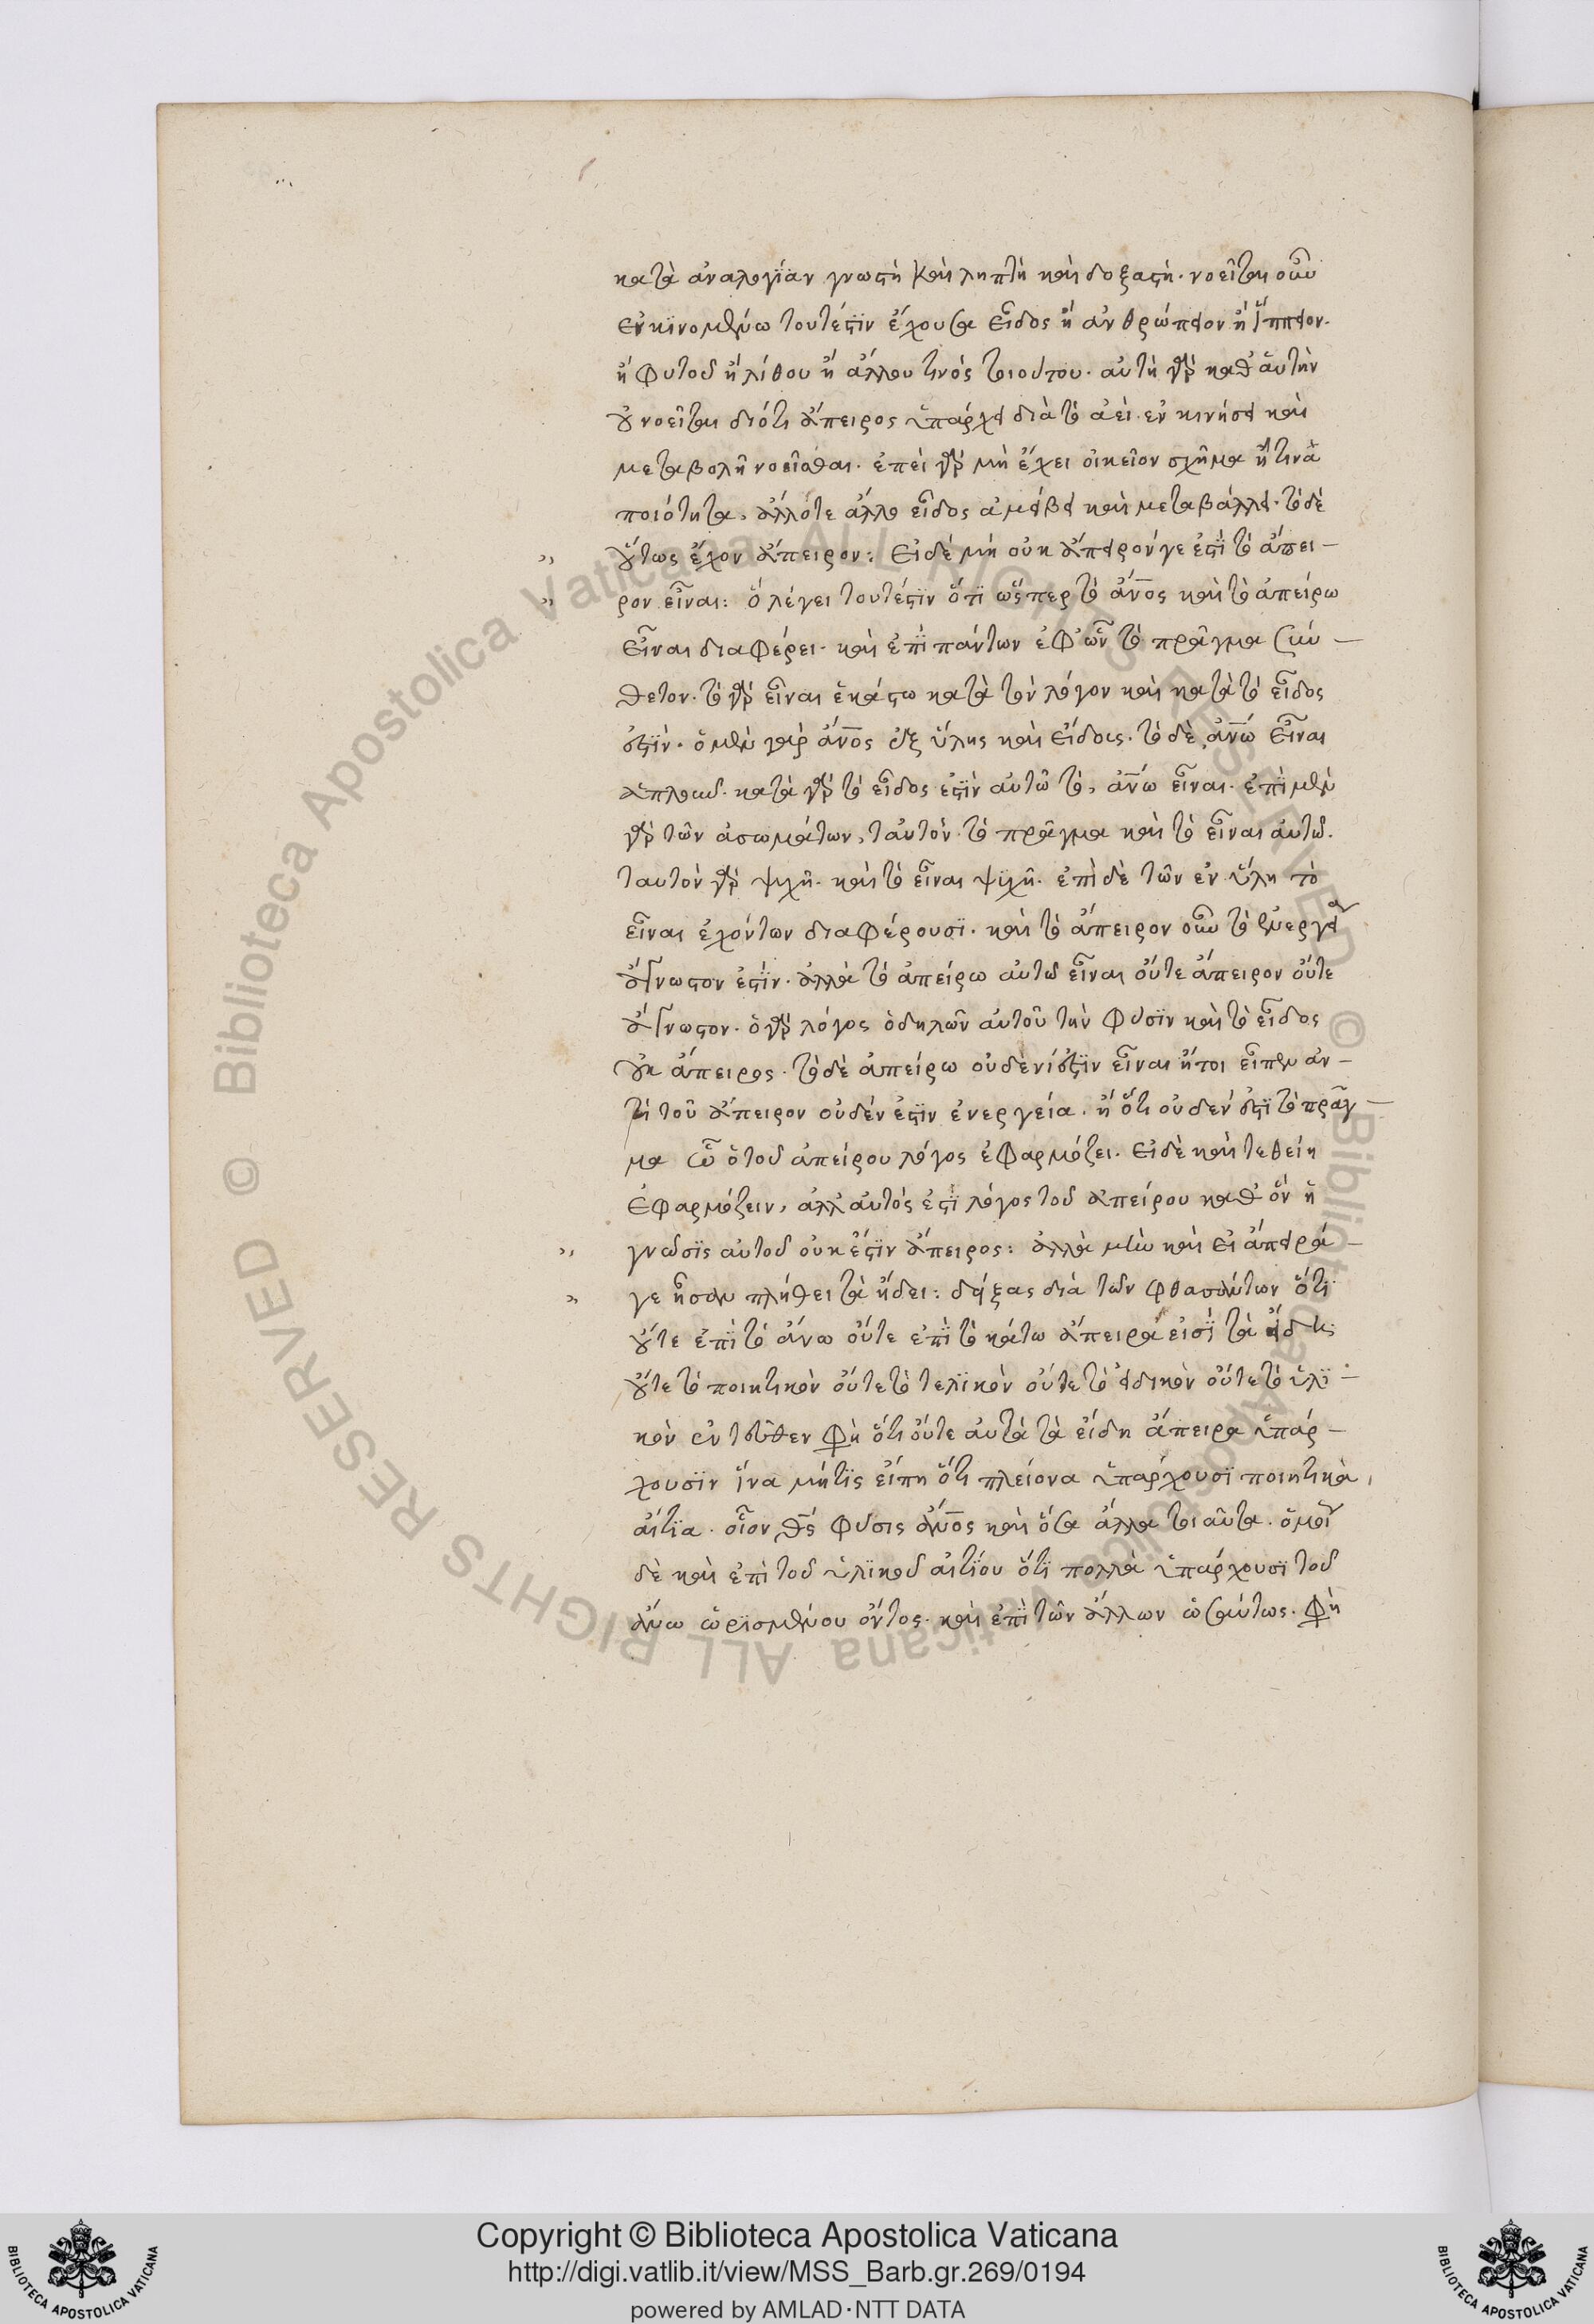 κατὰ ἀναλογίαν γνωστὴ καὶ ληπτὴ καὶ δοξαστή. νοεῖται οὖν
ἐν κινομένω τουτέστϊν ἔχουσα εἶδος ἢ ἀνθρώπειον ἢ ἵππειον.
ἢ φυτοῦ ἢ λίθου ἢ ἄλλου τινὸς τοιούτου. αὐτὴ γὰρ καθ' αὑτὴν
οὐ νοεῖται διότι ἄπειρος ὑπάρχει διὰ τὸ ἀεὶ ἐν κινήσει καὶ
μεταβολῆ νοεῖσθαι. ἐπεὶ γὰρ μὴ ἔχει οἰκεῖον σχῆμα ἤ τινα
ποιότητα, ἄλλότε ἄλλο εἶδος ἀμείβει καὶ μεταβάλλει. τὸ δὲ
οὕτως ἔχον ἄπειρον: Εἰ δὲ μὴ οὐκ ἄπειρόν γε ἐστὶ τὸ ἀπει-
ρον εἶναι: ὃ λέγει τουτέστϊν ὅτϊ ὥσπερ τὸ ἄνος καὶ τὸ ἀπείρω
εἶναι διαφέρει. καὶ ἐπὶ πάντων ἐφ' ὧν τὸ πρᾶγμα σύν-
θετον. τὸ γὰρ εἶναι ἑκάστω κατὰ τὸν λόγον καὶ κατὰ τὸ εἶδος
ἐστϊν. ὁ μὲν γὰρ ἄνος ἐξ ὕλης καὶ εἴδους. τὸ δὲ ἀνω εἶναι
ἁπλοῦν. κατὰ γὰρ τὸ εἶδος ἐστὶν αὐτῶ τὸ, ἀνω εἶναι. ἐπὶ μὲν
γὰρ τῶν ἀσωμάτων, ταὐτὸν τὸ πρᾶγμα καὶ τὸ εἶναι αὐτῶ.
ταυτὸν γὰρ ψυχὴ. καὶ τὸ εἶναι ψυχῆ. ἐπὶ δὲ τῶν ἐν ὕλη τὸ
εἶναι ἐχόντων διαφέρουσϊ. καὶ τὸ ἄπειρον οὖν τὸ ἐνεργεία
ἄγνωστον ἐστίν. ἀλλὰ τὸ ἀπείρω αὐτῶ εἶναι οὔτε ἄπειρον οὔτε
ἄγνωστον. ὁ γὰρ λόγος ὁ δηλῶν αὐτοῦ τὴν φύσϊν καὶ τὸ εἶδος
οὐκ ἄπειρος. τὸ δὲ ἀπείρω οὐδενί ἐστϊν εἶναι ἤτοι εἶπεν ἀν-
τὶ τοῦ ἄπειρον οὐδέν ἐστϊν ἐνεργεία. ἢ ὅτι οὐδέν ἐστϊ τὸ πρᾶγ-
μα ὧ ὁ τοῦ ἀπείρου λόγος ἐφαρμόζει. Εἰ δὲ καὶ τεθείη
ἐφαρμόζειν, ἀλλ' αὐτὸς ἐστὶ λόγος τοῦ ἀπείρου καθ' ὃν ἡ
γνῶσϊς αὐτοῦ οὐκ ἔστϊν ἄπειρος: ἀλλὰ μὴν καὶ εἰ ἄπειρά
γε ἦσαν πλήθει τὰ ἤδει: δείξας διὰ τῶν φθασάντων ὅτι
οὔτε ἐπὶ τὸ ἄνω οὔτε ἐπὶ τὸ κάτω ἄπειρά εἰσϊ τὰ εἴδη
οὔτε τὸ ποιητικὸν οὔτε τὸ τελϊκὸν οὔτε τὸ εἰδικὸν οὔτε τὸ ὑλϊ-
κὸν ἐντεῦθεν φη ὅτι οὔτε αὐτὰ τὰ εἴδη ἄπειρα ὑπάρ-
χουσϊν ἵνα μήτϊς εἴπη ὅτι πλείονα ὑπάρχουσϊ ποιητικὰ
αἴτϊα. οἷον θς φύσις ἄνος καὶ ὅσα ἄλλα τοιαῦτα. ὁμοί
δὲ καὶ ἐπὶ τοῦ ὑλϊκοῦ αἰτίου ὅτϊ πολλὰ ὑπάρχουσϊ τοῦ
ἄνω ὡρϊσμένου ὄντος. καὶ ἐπὶ τῶν ἄλλων ὡσαύτως. φη
Copyright © Biblioteca Apostolica Vaticana
http://digi.vatlib.it/view/MSS_Barb.gr.269/0194
powered by AMLAD·NTT DATA